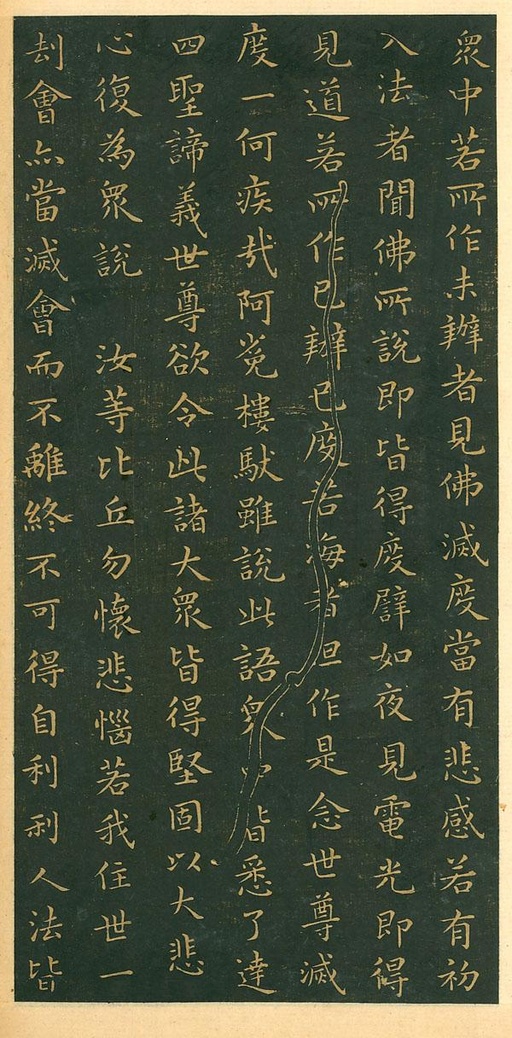 衆中若所作未辦者見佛滅度當有悲感若有初
入法者聞佛所說即皆得度譬如夜見電光即得
見道若所作已辦已度苦海者但作是念世尊滅
度一何疾哉阿㝹樓馱雖說此語衆中皆悉了達
四聖諦義世尊欲令此諸大衆皆得堅固以大悲
心復為衆說 汝等比丘勿懷悲惱若我住世一
刦會亦當滅會而不離終不可得自利利人法皆